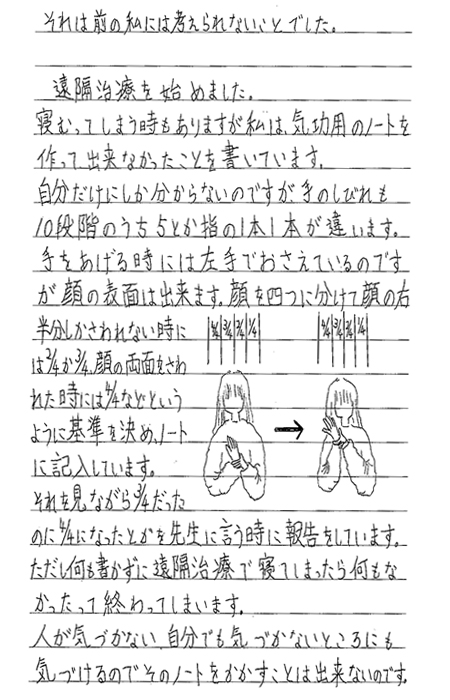 それは前の私には考えられないことでした。
遠隔治療を始めました。
寝むってしまう時もありますが私は、気功用のノートを
作って出来なかったことを書いています。
自分だけにしか分からないのですが手のしびれも
10段階のうち5とか指の1本1本が違います。
手をあげる時には左手でおさえているのです
が顔の表面は出来ます。顔を四つに分けて顔の右
半分しかさわれない時に
は2/4か3/4、顔の両面をさわ
れた時には4/4などという
ように基準を決め、ノート
に記入しています。
それを見ながら3/4だった
のに4/4になったとかを先生に言う時に報告をしています。
ただし何も書かずに遠隔治療で寝てしまったら何もな
かったって終わってしまいます。
人が気づかない、自分でも気づかないところにも
気づけるのでそのノートをかかすことは出来ないのです。